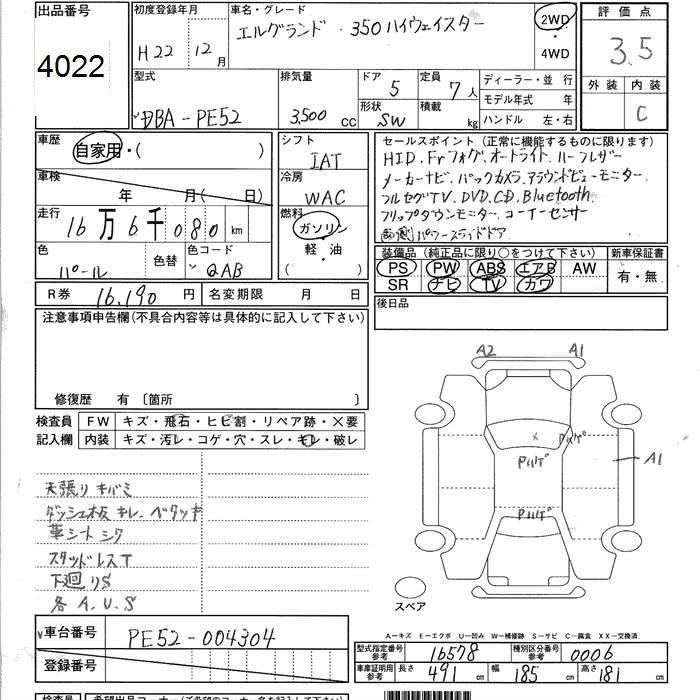 出品番号 初度登録年月 車名・グレード 2WD 評価点
4022 H22 12月 エルグランド・350ハイウェイスター ・ 3.5
4WD
型式 排気量 ドア 5 定員 7人 ディーラー・並行 外装 内装
DBA-PE52 3,500cc 形状 SW 積載 kg モデル年式 年 C
ハンドル 左・右
車歴 自家用・( ) シフト IAT セールスポイント(正常に機能するものに限ります)
HID. Frフォグ. オートライト. ハーフレザー
車検 年 月( 日) 冷房 WAC メーカーナビ. バックカメラ. アラウンドビューモニター.
走行 16万6千080km 燃料 ガソリン フルセグTV. DVD. CD. Bluetooth.
軽・油 フリップダウンモニター. コーナーセンサー
( ) 両側パワースライドドア.
色 パール 色替 色コード QAB 装備品(純正品に限り○をつけて下さい) 新車保証書
PS PW ABS エアB AW 有・無
SR ナビ TV カワ
R券 16,190円 名変期限 月 日 後日品
注意事項申告欄(不具合内容等は具体的に記入して下さい)
修復歴 有 〔箇所 〕
検査員 FW キズ・飛石・ヒビ割・リペア跡・×要
記入欄 内装 キズ・汚レ・コゲ・穴・スレ・キレ・破レ
A2 A1
× Pハゲ
Pハゲ
A1
Pハゲ
天張り キバミ
ダッシュ板 キレ. ベタツキ
革シート シワ
スタッドレスT
下廻りS
各A.U.S
スペア
A-キズ E-エクボ U-凹み W-補修跡 S-サビ C-腐食 XX-交換済
車台番号 PE52-004304
型式指定番号 参考 16578 種別区分番号 参考 0006
登録番号
車庫証明用 参考 長さ 491cm 幅 185cm 高さ 181cm